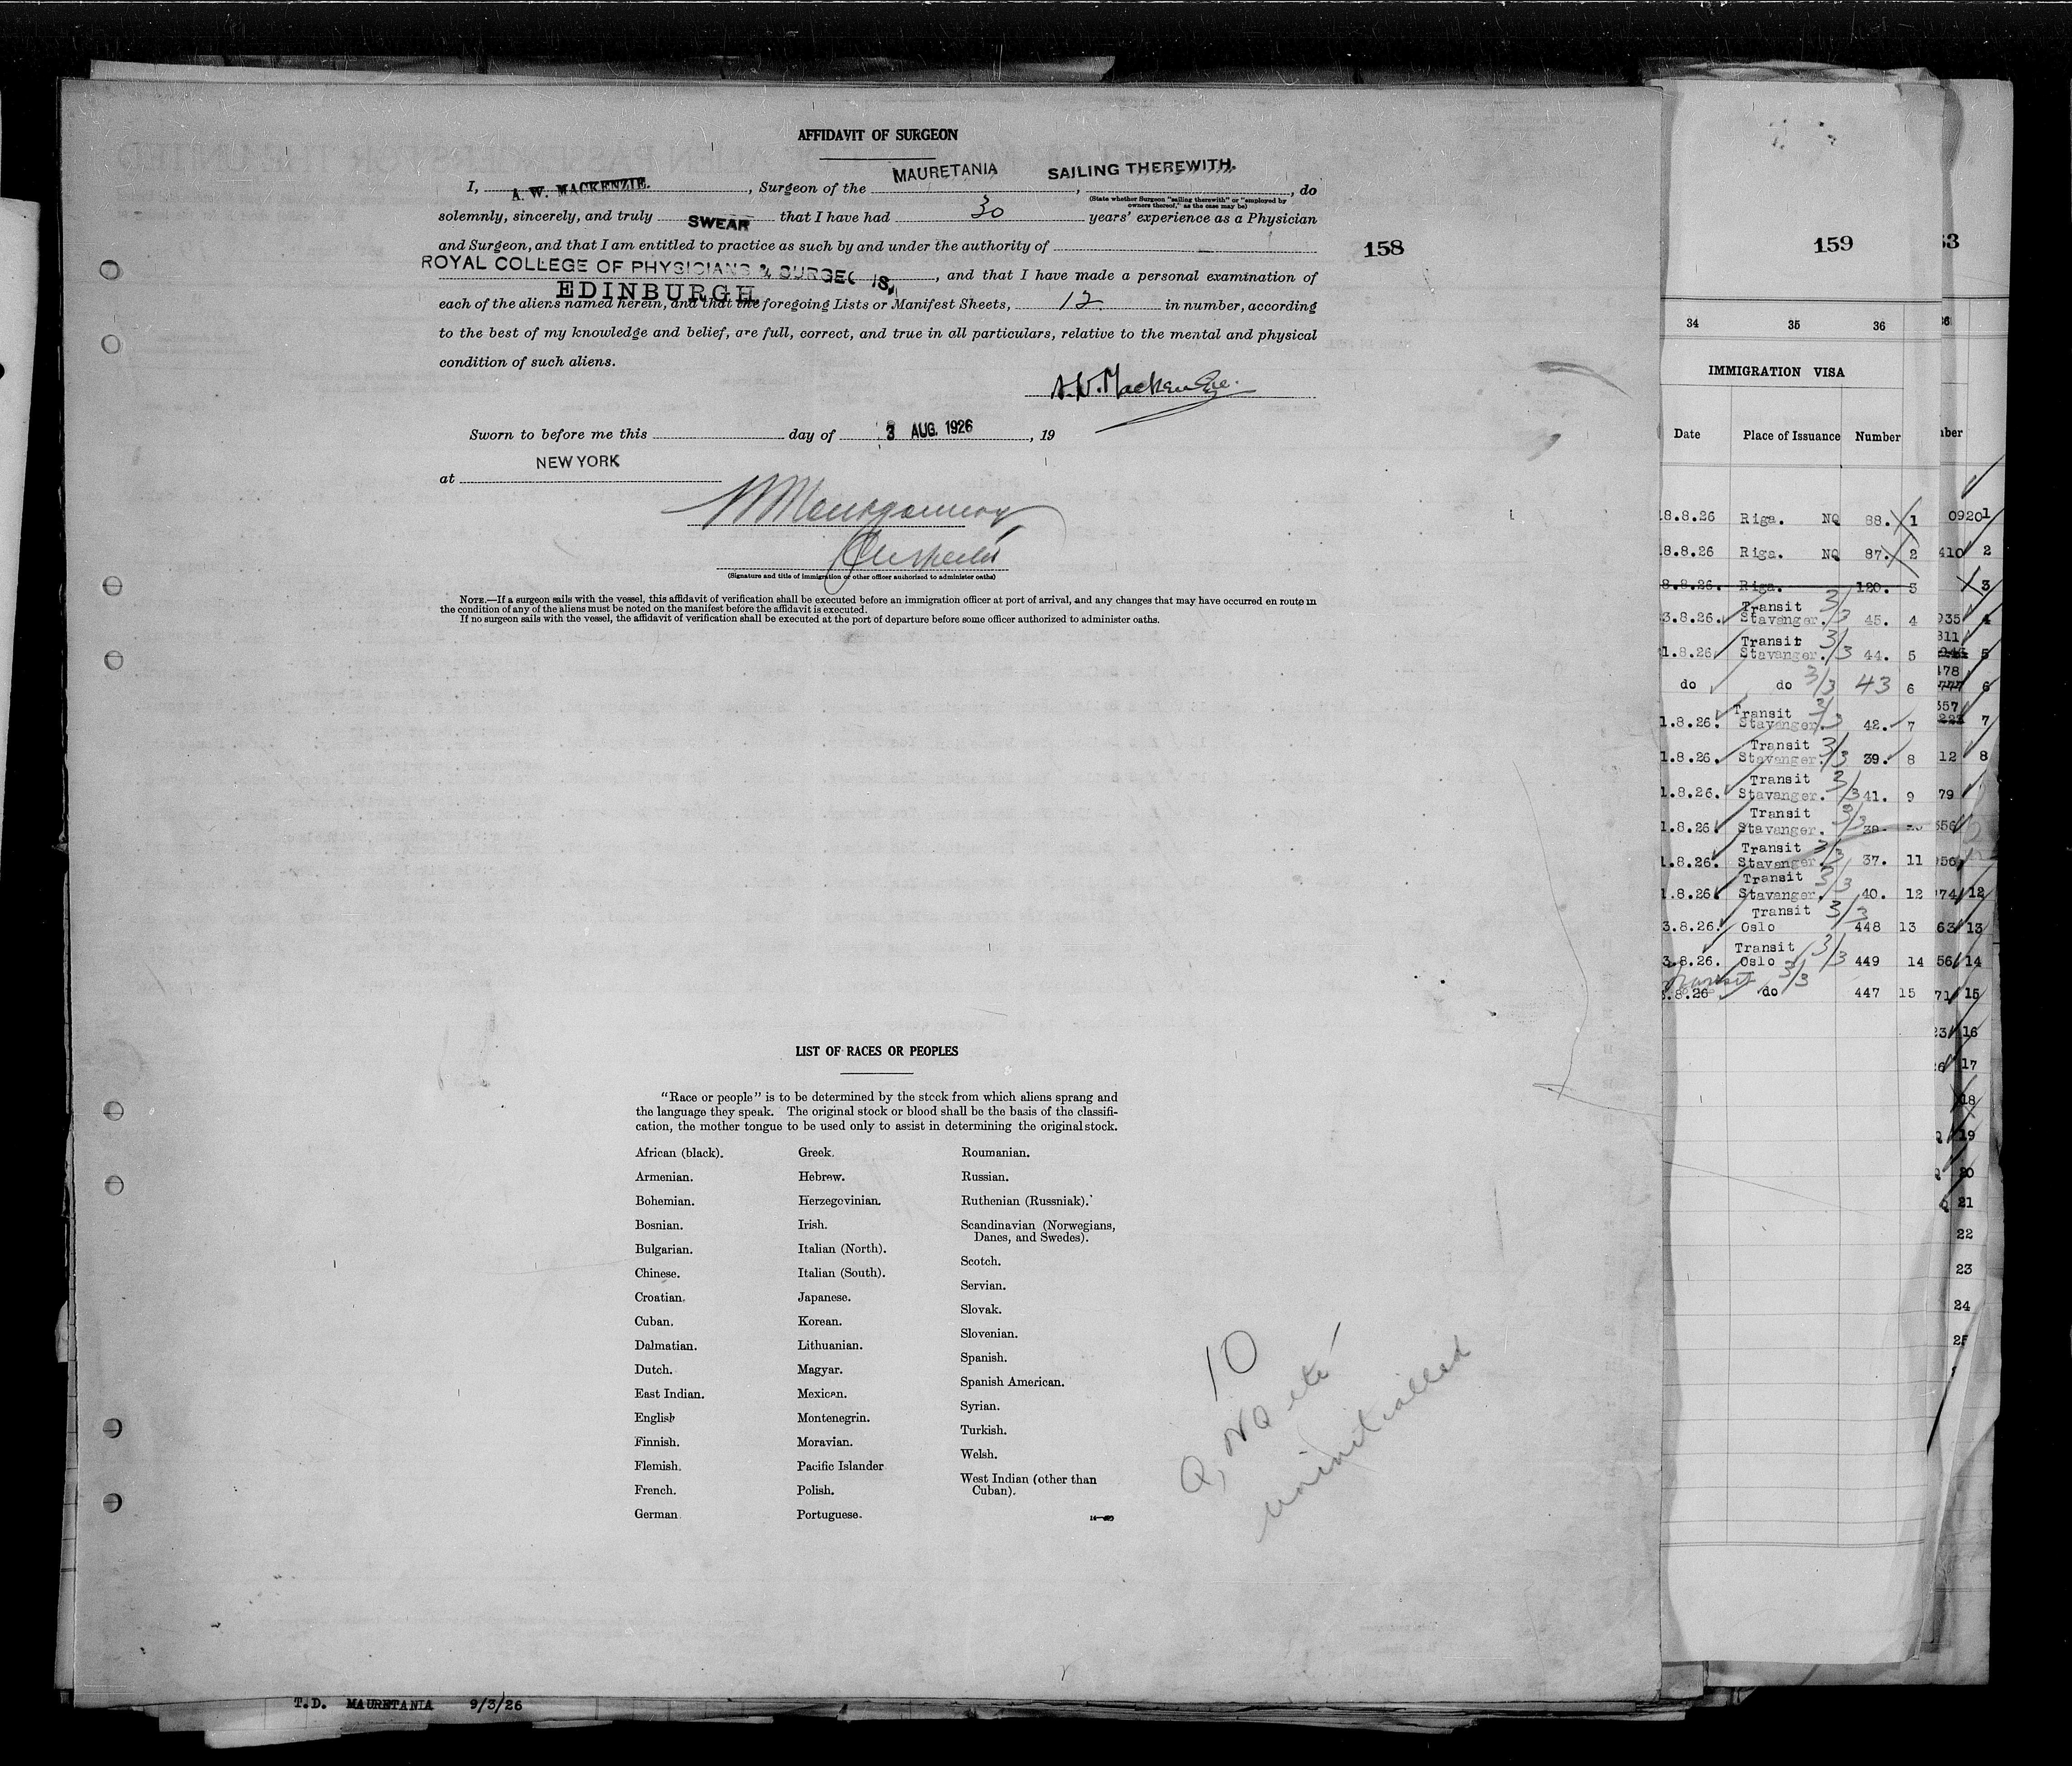 AFFIDAVIT OF SURGEON
I, A. W. MACKENZIE. , Surgeon of the MAURETANIA , SAILING THEREWITH. , do
(State whether Surgeon "sailing therewith" or "employed by
owners thereof," as the case may be)
solemnly, sincerely, and truly SWEAR that I have had 30 years' experience as a Physician
and Surgeon, and that I am entitled to practice as such by and under the authority of
ROYAL COLLEGE OF PHYSICIANS & SURGEO , and that I have made a personal examination of
EDINBURGH
each of the aliens named herein, and that the foregoing Lists or Manifest Sheets, 12 in number, according
to the best of my knowledge and belief, are full, correct, and true in all particulars, relative to the mental and physical
condition of such aliens.
A.W. Mackenzie.
Sworn to before me this day of 3 AUG. 1926 , 19
at NEW YORK
Montgomery
Inspector
(Signature and title of immigration or other officer authorized to administer oaths)
NOTE.—If a surgeon sails with the vessel, this affidavit of verification shall be executed before an immigration officer at port of arrival, and any changes that may have occurred en route in
the condition of any of the aliens must be noted on the manifest before the affidavit is executed.
If no surgeon sails with the vessel, the affidavit of verification shall be executed at the port of departure before some officer authorized to administer oaths.
158
LIST OF RACES OR PEOPLES
"Race or people" is to be determined by the stock from which aliens sprang and
the language they speak. The original stock or blood shall be the basis of the classifi-
cation, the mother tongue to be used only to assist in determining the original stock.
African (black).
Armenian.
Bohemian.
Bosnian.
Bulgarian.
Chinese.
Croatian.
Cuban.
Dalmatian.
Dutch.
East Indian.
English
Finnish.
Flemish.
French.
German
Greek.
Hebrew.
Herzegovinian.
Irish.
Italian (North).
Italian (South).
Japanese.
Korean.
Lithuanian.
Magyar.
Mexican.
Montenegrin.
Moravian.
Pacific Islander
Polish.
Portuguese.
Roumanian.
Russian.
Ruthenian (Russniak).
Scandinavian (Norwegians,
Danes, and Swedes).
Scotch.
Servian.
Slovak.
Slovenian.
Spanish.
Spanish American.
Syrian.
Turkish.
Welsh.
West Indian (other than
Cuban).
10
Q, NQ etc
uninitialled
T.D. MAURETANIA 9/3/26
159
34 35 36
IMMIGRATION VISA
Date Place of Issuance Number
18.8.26 Riga. NQ 88. 1
8.8.26 Riga. NQ 87. 2
8.8.26. Riga. 120. 3
Transit 3/3
3.8.26. Stavanger. 45. 4
Transit 3/3
1.8.26 Stavanger. 44. 5
do do 3/3 43 6
Transit 3/3
1.8.26. Stavanger. 42. 7
Transit 3/3
1.8.26. Stavanger. 39. 8
Transit 3/3
1.8.26. Stavanger. 41. 9
Transit 3/3
1.8.26. Stavanger. 38.
Transit 3/3
1.8.26. Stavanger. 37. 11
Transit 3/3
1.8.26. Stavanger. 40. 12
Transit 3/3
3.8.26. Oslo 448 13
Transit 3/3
3.8.26. Oslo 449 14
Transit 3/3
3.8.26 do 447 15
63
36
ber
0920 1
410 2
3
935 4
811
5
478
6
557
7
12 8
79
556
956
74 12
63 13
56 14
71 15
23 16
26 17
18
19
20
21
22
23
24
25